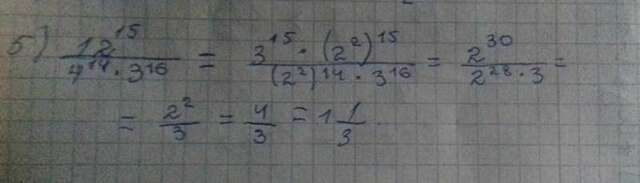 5) \frac{12^{15}}{4^{14} \cdot 3^{16}} = \frac{3^{15} \cdot (2^2)^{15}}{(2^2)^{14} \cdot 3^{16}} = \frac{2^{30}}{2^{28} \cdot 3} =
= \frac{2^2}{3} = \frac{4}{3} = 1\frac{1}{3}.